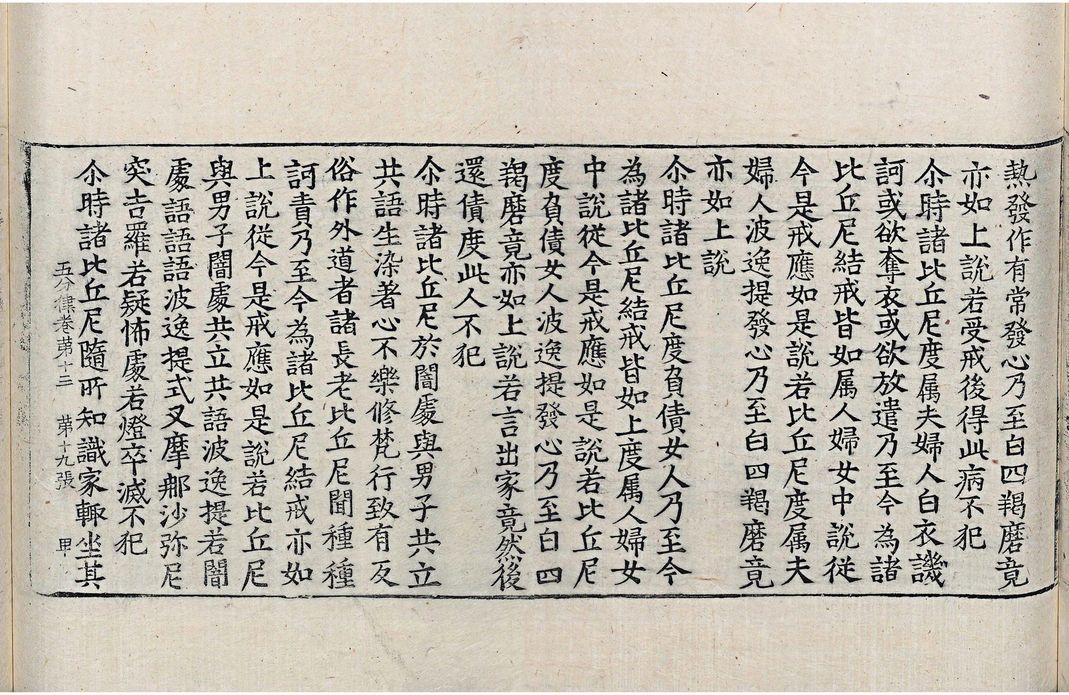 熱發作有常發心乃至白四羯磨竟
亦如上說若受戒後得此病不犯
尒時諸比丘尼度属夫婦人白衣譏
訶或欲奪衣或欲放遣乃至今為諸
比丘尼結戒皆如属人婦女中說從
今是戒應如是說若比丘尼度属夫
婦人波逸提發心乃至白四羯磨竟
亦如上說
尒時諸比丘尼度負債女人乃至今
為諸比丘尼結戒皆如上度属人婦女
中說從今是戒應如是說若比丘尼
度負債女人波逸提發心乃至白四
羯磨竟亦如上說若言出家竟然後
還債度此人不犯
尒時諸比丘尼於闇處與男子共立
共語生染著心不樂修梵行致有反
俗作外道者諸長老比丘尼聞種種
訶責乃至今為諸比丘尼結戒亦如
上說從今是戒應如是說若比丘尼
與男子闇處共立共語波逸提若闇
處語語語波逸提式叉摩那沙弥尼
突吉羅若疑怖處若燈卒滅不犯
尒時諸比丘尼隨所知識家輙坐其
五分律卷苐十三 苐十九張 甲